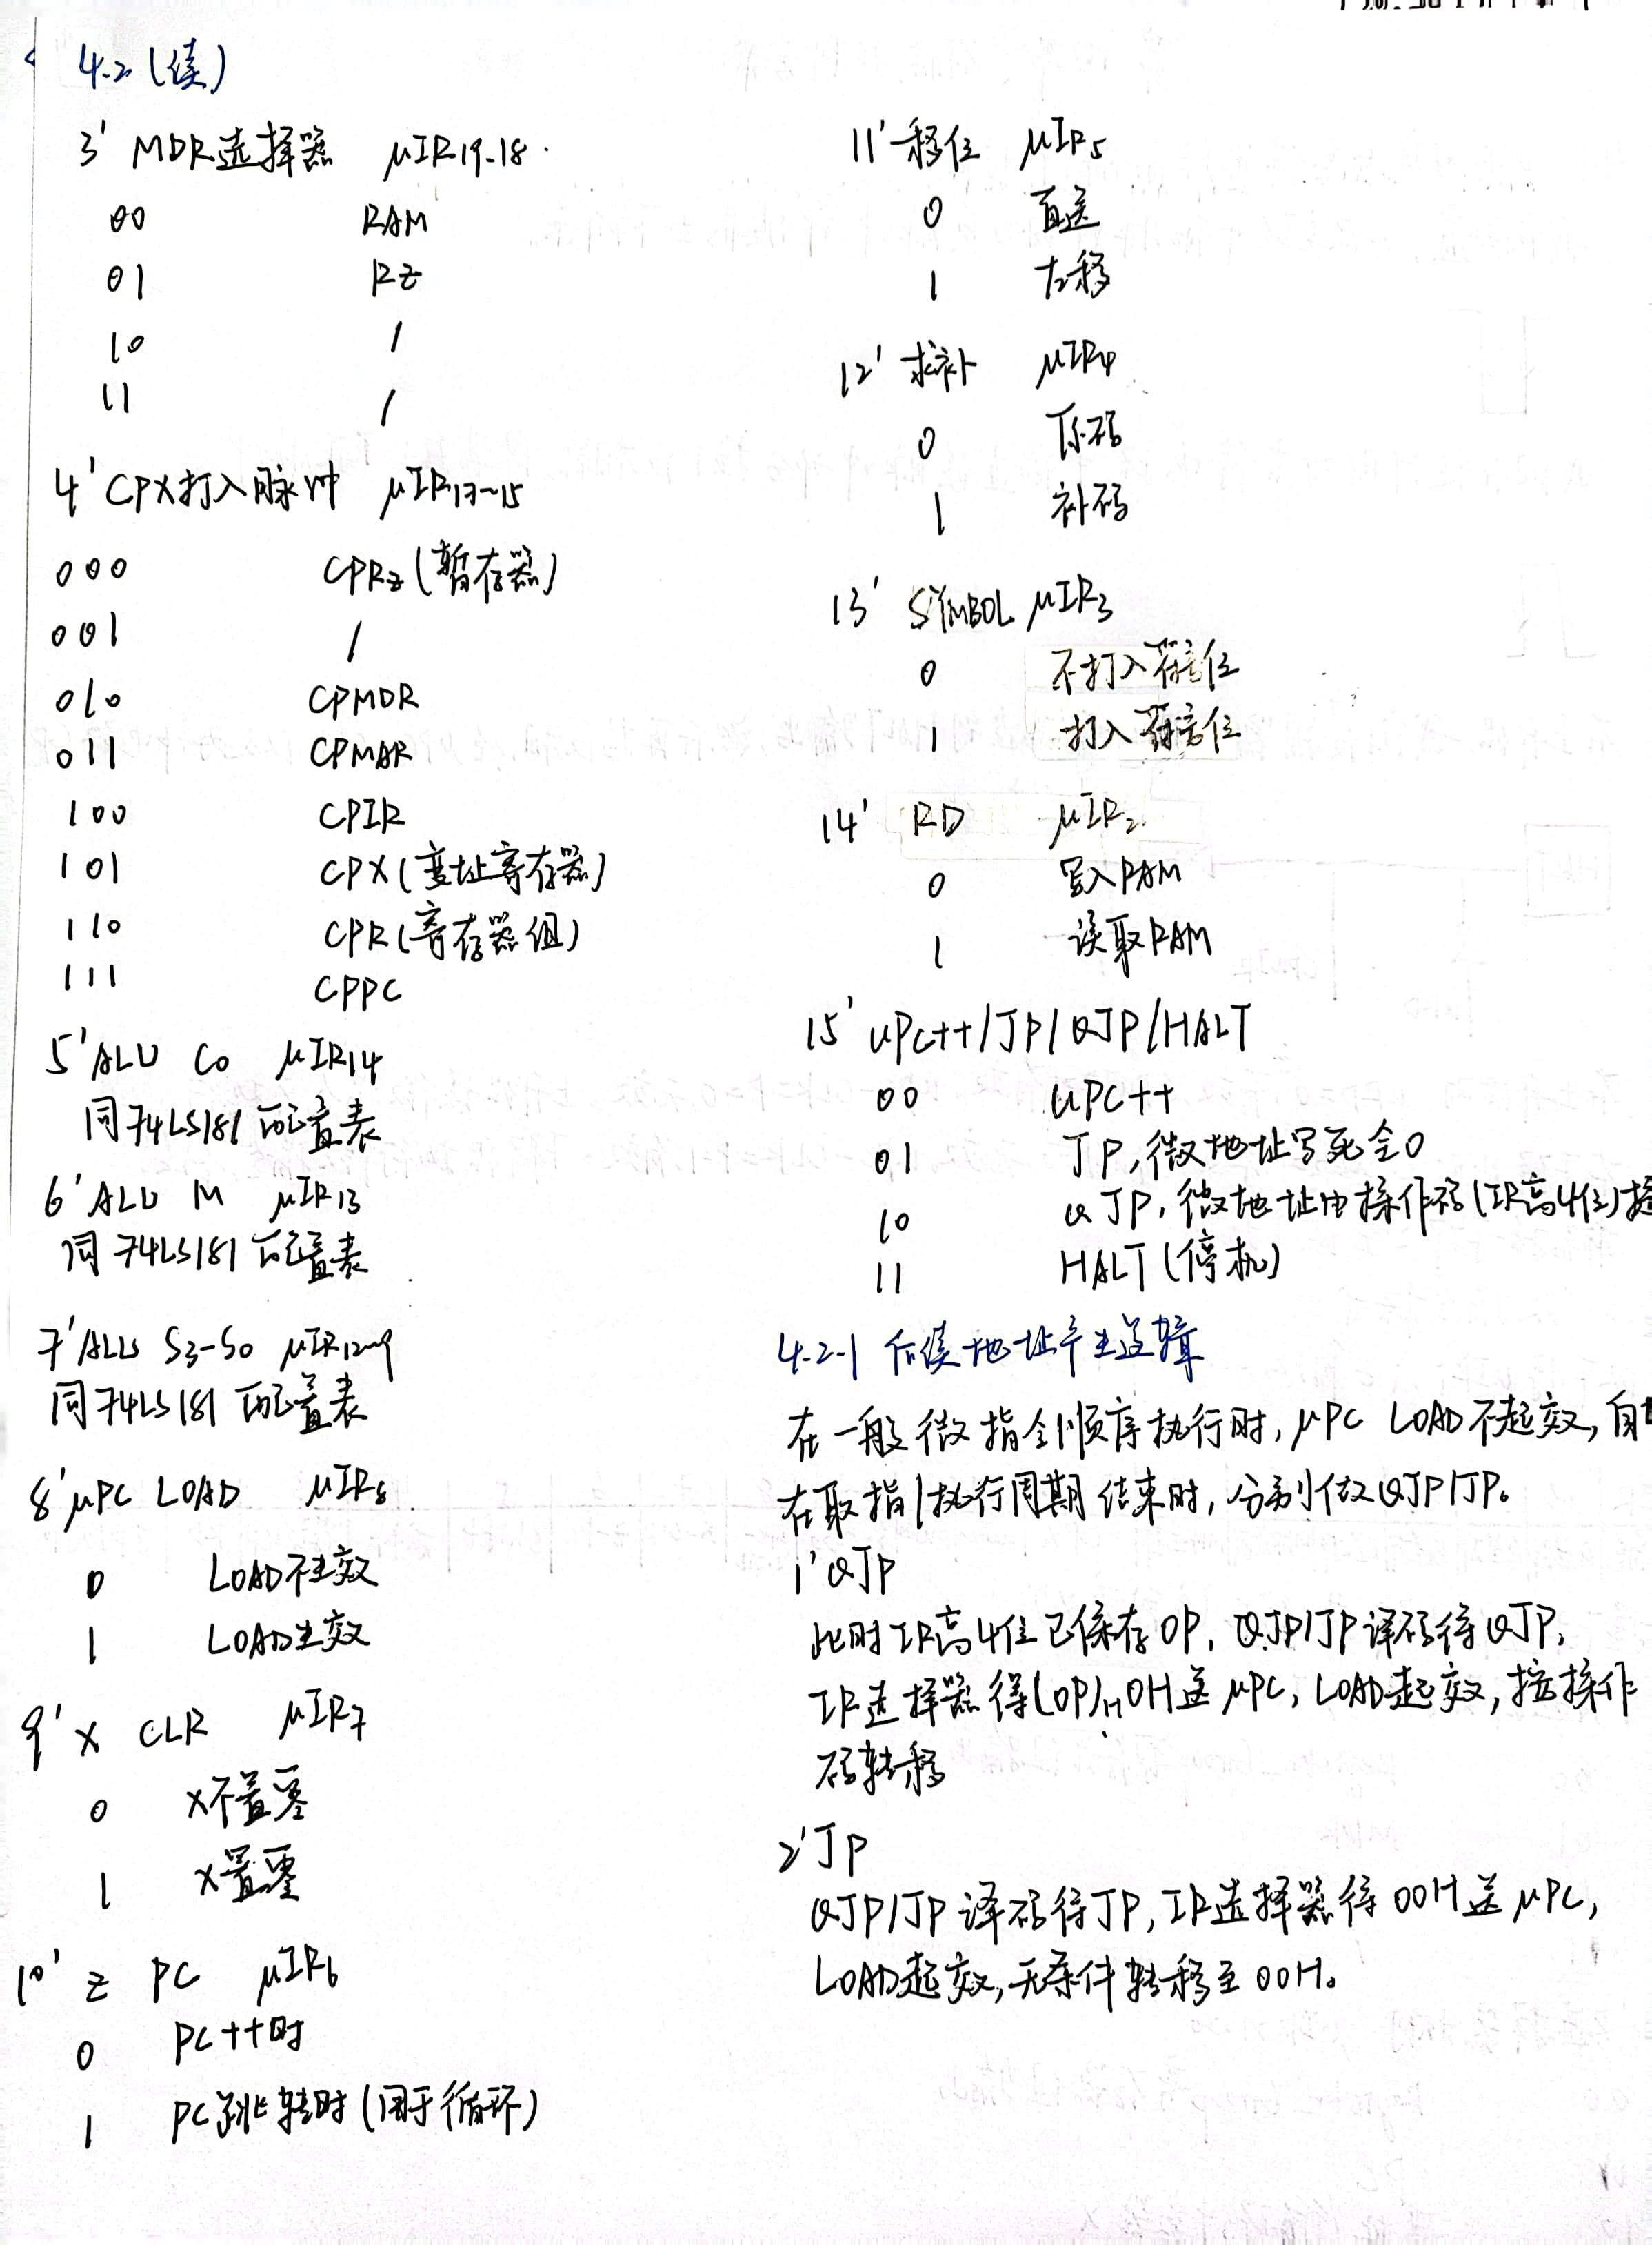 4.2 (续)
3' MDR选择器 μIR19-18
00 RAM
01 RZ
10 /
11 /
4' CPX打入脉冲 μIR17~15
000 CPRz (暂存器)
001 /
010 CPMDR
011 CPMAR
100 CPIR
101 CPX (变址寄存器)
110 CPR (寄存器组)
111 CPPC
5' ALU C0 μIR14
同74LS181配置表
6' ALU M μIR13
同74LS181配置表
7' ALU S3-S0 μIR12~9
同74LS181配置表
8' μPC LOAD μIR8
0 LOAD不生效
1 LOAD生效
9' X CLR μIR7
0 X不置零
1 X置零
10' Z PC μIR6
0 PC++时
1 PC跳转时 (用于循环)
11' 移位 μIR5
0 直送
1 左移
12' 求补 μIR4
0 原码
1 补码
13' SYMBOL μIR3
0 不打入符号位
1 打入符号位
14' RD μIR2
0 写入RAM
1 读取RAM
15' uPC++/JP/QJP/HALT
00 uPC++
01 JP,微地址写死全0
10 QJP,微地址由操作码(IR高4位)
11 HALT (停机)
4.2.1 后续地址产生逻辑
在一般微指令顺序执行时,μPC LOAD不起效,自
在取指/执行周期结束时,分别做QJP/JP。
1' QJP
此时IR高4位已保存OP,QJP/JP译码得QJP,
IR选择器得(OP)H0H送μPC,LOAD起效,按操作
码转移
2' JP
QJP/JP译码得JP,IR选择器得00H送μPC,
LOAD起效,无条件转移至00H。